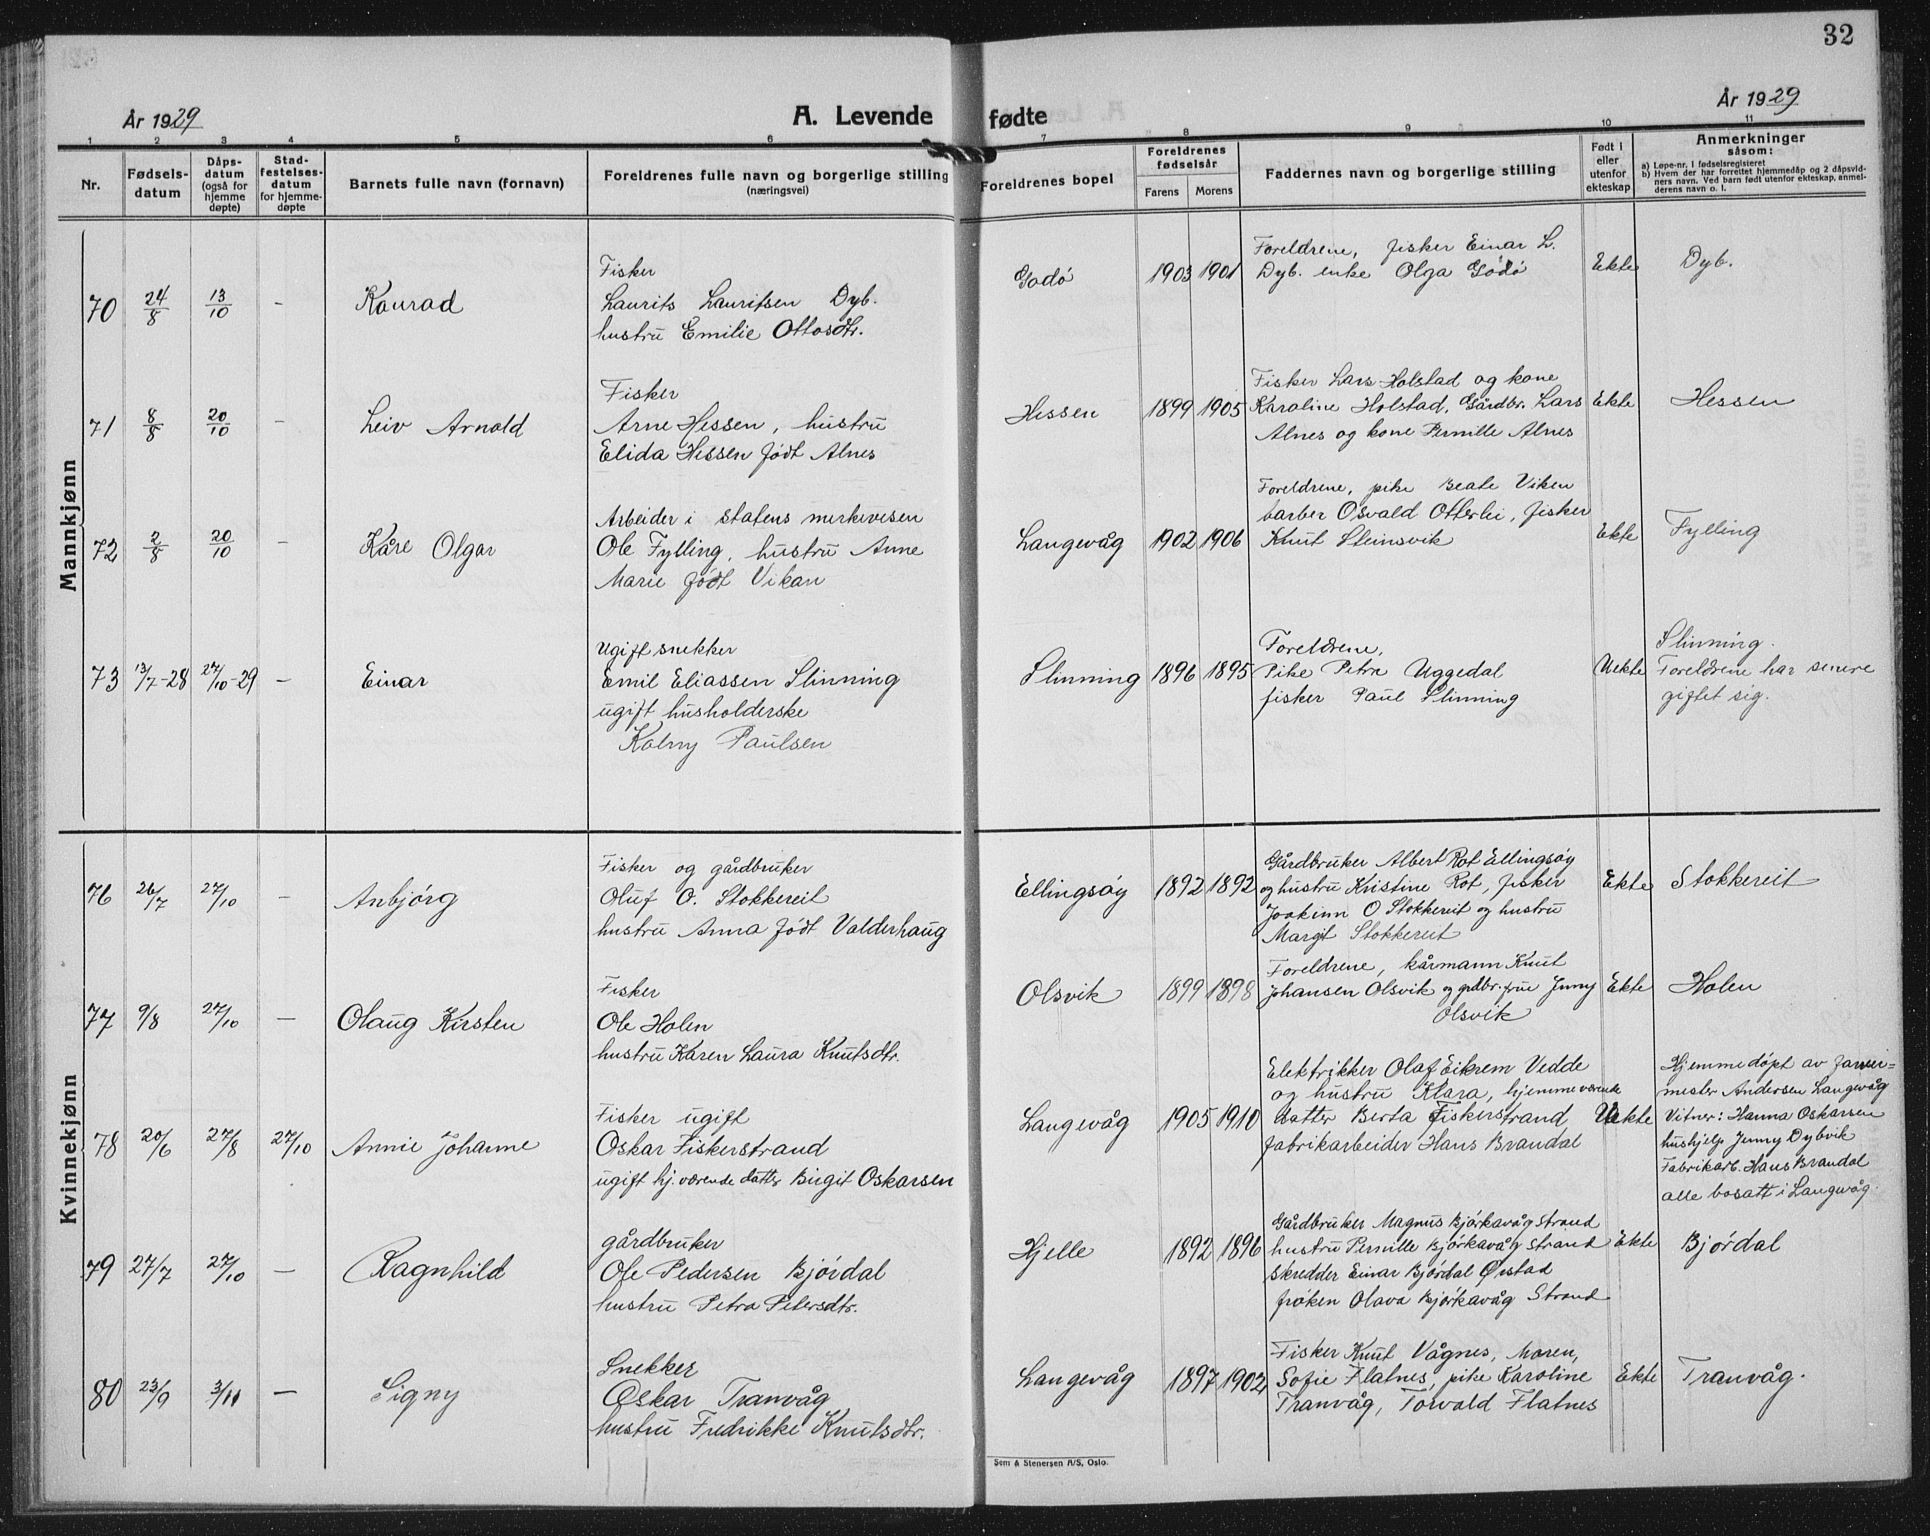 32
År 1929
A. Levende fødte
År 1929
1 2 3 4 5 6 7 8 9 10 11
Nr.
Fødsels-
datum
Dåps-
datum
(også for
hjemme
døpte)
Stad-
festelses-
datum
for hjemme-
døpte
Barnets fulle navn (fornavn)
Foreldrenes fulle navn og borgerlige stilling
(næringsvei)
Foreldrenes bopel
Foreldrenes
fødselsår
Farens
Morens
Faddernes navn og borgerlige stilling
Født i
eller
utenfor
ekteskap
Anmerkninger
såsom:
a) Løpe-nr. i fødselsregisteret
b) Hvem der har forrettet hjemmedåp og 2 dåpsvid-
ners navn. Ved barn født utenfor ekteskap, anmel-
derens navn o. l.
Mannkjønn
70 24/8 13/10 - Konrad
Fisker
Laurits Lauritsen Dyb.
hustru Emilie Ottosdtr.
Godö 1903 1901
Foreldrene, fisker Einar L.
Dyb. enke Olga Godö
Ekte Dyb.
71 8/8 20/10 - Leiv Arnold
Fisker
Arne Hessen, hustru
Elida Hessen født Alnes
Hessen 1899 1905
Fisker Lars Holstad og kone
Karoline Holstad, Gårdbr. Lars
Alnes og kone Pernille Alnes
Ekte Hessen
72 2/8 20/10 - Kåre Olgar
Arbeider i statens merkevesen
Ole Fylling, hustru Anne
Marie født Vikan
Langevåg 1902 1906
Foreldrene, pike Beate Viken
barber Osvald Otterlei, fisker
Knut Steinsvik
Ekte Fylling
73 13/7-28 27/10-29 - Einar
Ugift snekker
Emil Eliassen Slinning
ugift husholderske
Kolny Paulsen
Slinning 1896 1895
Foreldrene,
Pike Petra Uggedal
fisker Paul Slinning
Uekte
Slinning.
Foreldrene har senere
giftet sig.
Kvinnekjønn
76 26/7 27/10 - Anbjörg
Fisker og gårdbruker
Oluf O. Stokkereit
hustru Anna født Valderhaug
Ellingsöy 1892 1892
Gårdbruker Albert Rot Ellingsöy
og hustru Kristine Rot, fisker
Joakinn O Stokkereit og hustru
Margit Stokkereit
Ekte Stokkereit
77 9/8 27/10 - Olaug Kirsten
Fisker
Ole Holen
hustru Karen Laura Knutsdtr.
Olsvik 1899 1898
Foreldrene, kårmann Knut
Johansen Olsvik og grdbr. frue Jenny
Olsvik
Ekte Holen
78 20/6 27/8 27/10 Annie Johanne
Fisker ugift
Oskar Fiskerstrand
ugift hj. værende datter Birgit Oskarsen
Langevåg 1905 1910
Elektrikker Olaf Eikrem Vedde
og hustru Klara, hjemmeværende
datter Berta Fiskerstrand,
fabrikarbeider Hans Brandal
Uekte
Hjemmedøpt av
mester Andersen Langevåg
Vitner: Hanna Oskarsen
hushjelp Jenny Dybvik
Fabrikarb. Hans Brandal
alle bosatt i Langevåg.
79 27/7 27/10 - Ragnhild
gårdbruker
Ole Pedersen Bjørdal
hustru Petra Petersdtr.
Hjelle 1892 1896
Gårdbruker Magnus Bjørkavåg Strand
hustru Pernille Bjørkavåg Strand
skredder Einar Bjørdal Ørstad
frøken Olava Bjørkavåg Strand
Ekte Bjørdal
80 23/9 3/11 - Signy
Snekker
Oskar Tranvåg
hustru Fredrikke Knutsdtr.
Langevåg 1897 1902
Fisker Knut Vågnes, Maren,
Sofie Flatnes, pike Karoline
Tranvåg, Torvald Flatnes
Ekte Tranvåg.
Sem & Stenersen A/S, Oslo.